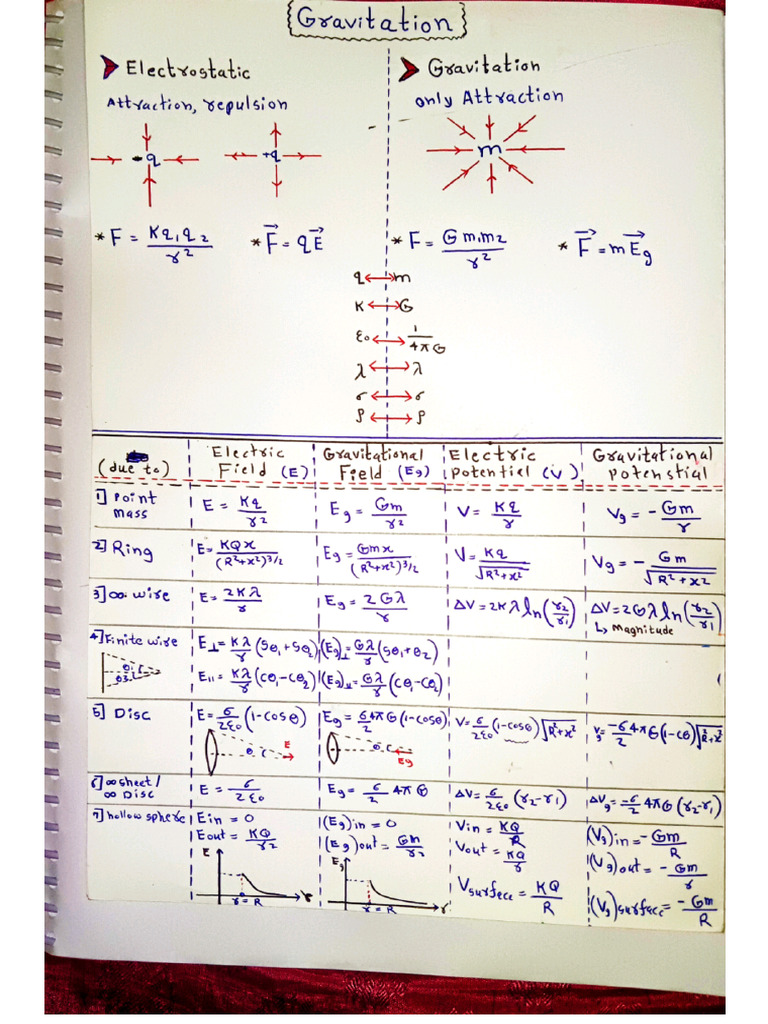 Gravitation
Electrostatic
Attraction, repulsion
-q
+q
* F = Kq₁q₂/r²
* F⃗ = qE⃗
Gravitation
only Attraction
m
* F = Gm₁m₂/r²
* F⃗ = mE⃗g
q ↔ m
K ↔ G
ε₀ ↔ 1/4πG
λ ↔ λ
σ ↔ σ
ρ ↔ ρ
(due to) | Electric Field (E) | Gravitational Field (Eg) | Electric potentiel (V) | Gravitational potenstial
1] Point mass | E = Kq/r² | Eg = Gm/r² | V = Kq/r | Vg = -Gm/r
2] Ring | E = KQx/(R²+x²)^3/2 | Eg = Gmx/(R²+x²)^3/2 | V = Kq/√R²+x² | Vg = -Gm/√R²+x²
3] ∞ wire | E = 2Kλ/r | Eg = 2Gλ/r | ΔV = 2Kλ ln(r₂/r₁) | ΔV = 2Gλ ln(r₂/r₁)
↳ Magnitude
4] Finite wire | E⊥ = Kλ/r (Sθ₁+Sθ₂) | (Eg)⊥ = Gλ/r (Sθ₁+θ₂)
E|| = Kλ/r (Cθ₁-Cθ₂) | (Eg)|| = Gλ/r (Cθ₁-Cθ₂)
5] Disc | E = σ/2ε₀ (1-cosθ) | Eg = σ4πG/2 (1-cosθ) | V = σ/2ε₀ (1-cosθ)√R²+x² | Vg = -σ4πG/2 (1-cθ)√R²+x²
θ E
θ Eg
6] ∞ sheet/ ∞ Disc | E = σ/2ε₀ | Eg = σ/2 4πG | ΔV = σ/2ε₀ (r₂-r₁) | ΔVg = -σ/2 4πG (r₂-r₁)
7] hollow sphere | Ein = 0 | (Eg)in = 0 | Vin = KQ/R | (Vg)in = -Gm/R
Eout = KQ/r² | (Eg)out = Gm/r² | Vout = KQ/r | (Vg)out = -Gm/r
Vsurface = KQ/R | (Vg)surface = -Gm/R
E r = R r
Eg r = R r